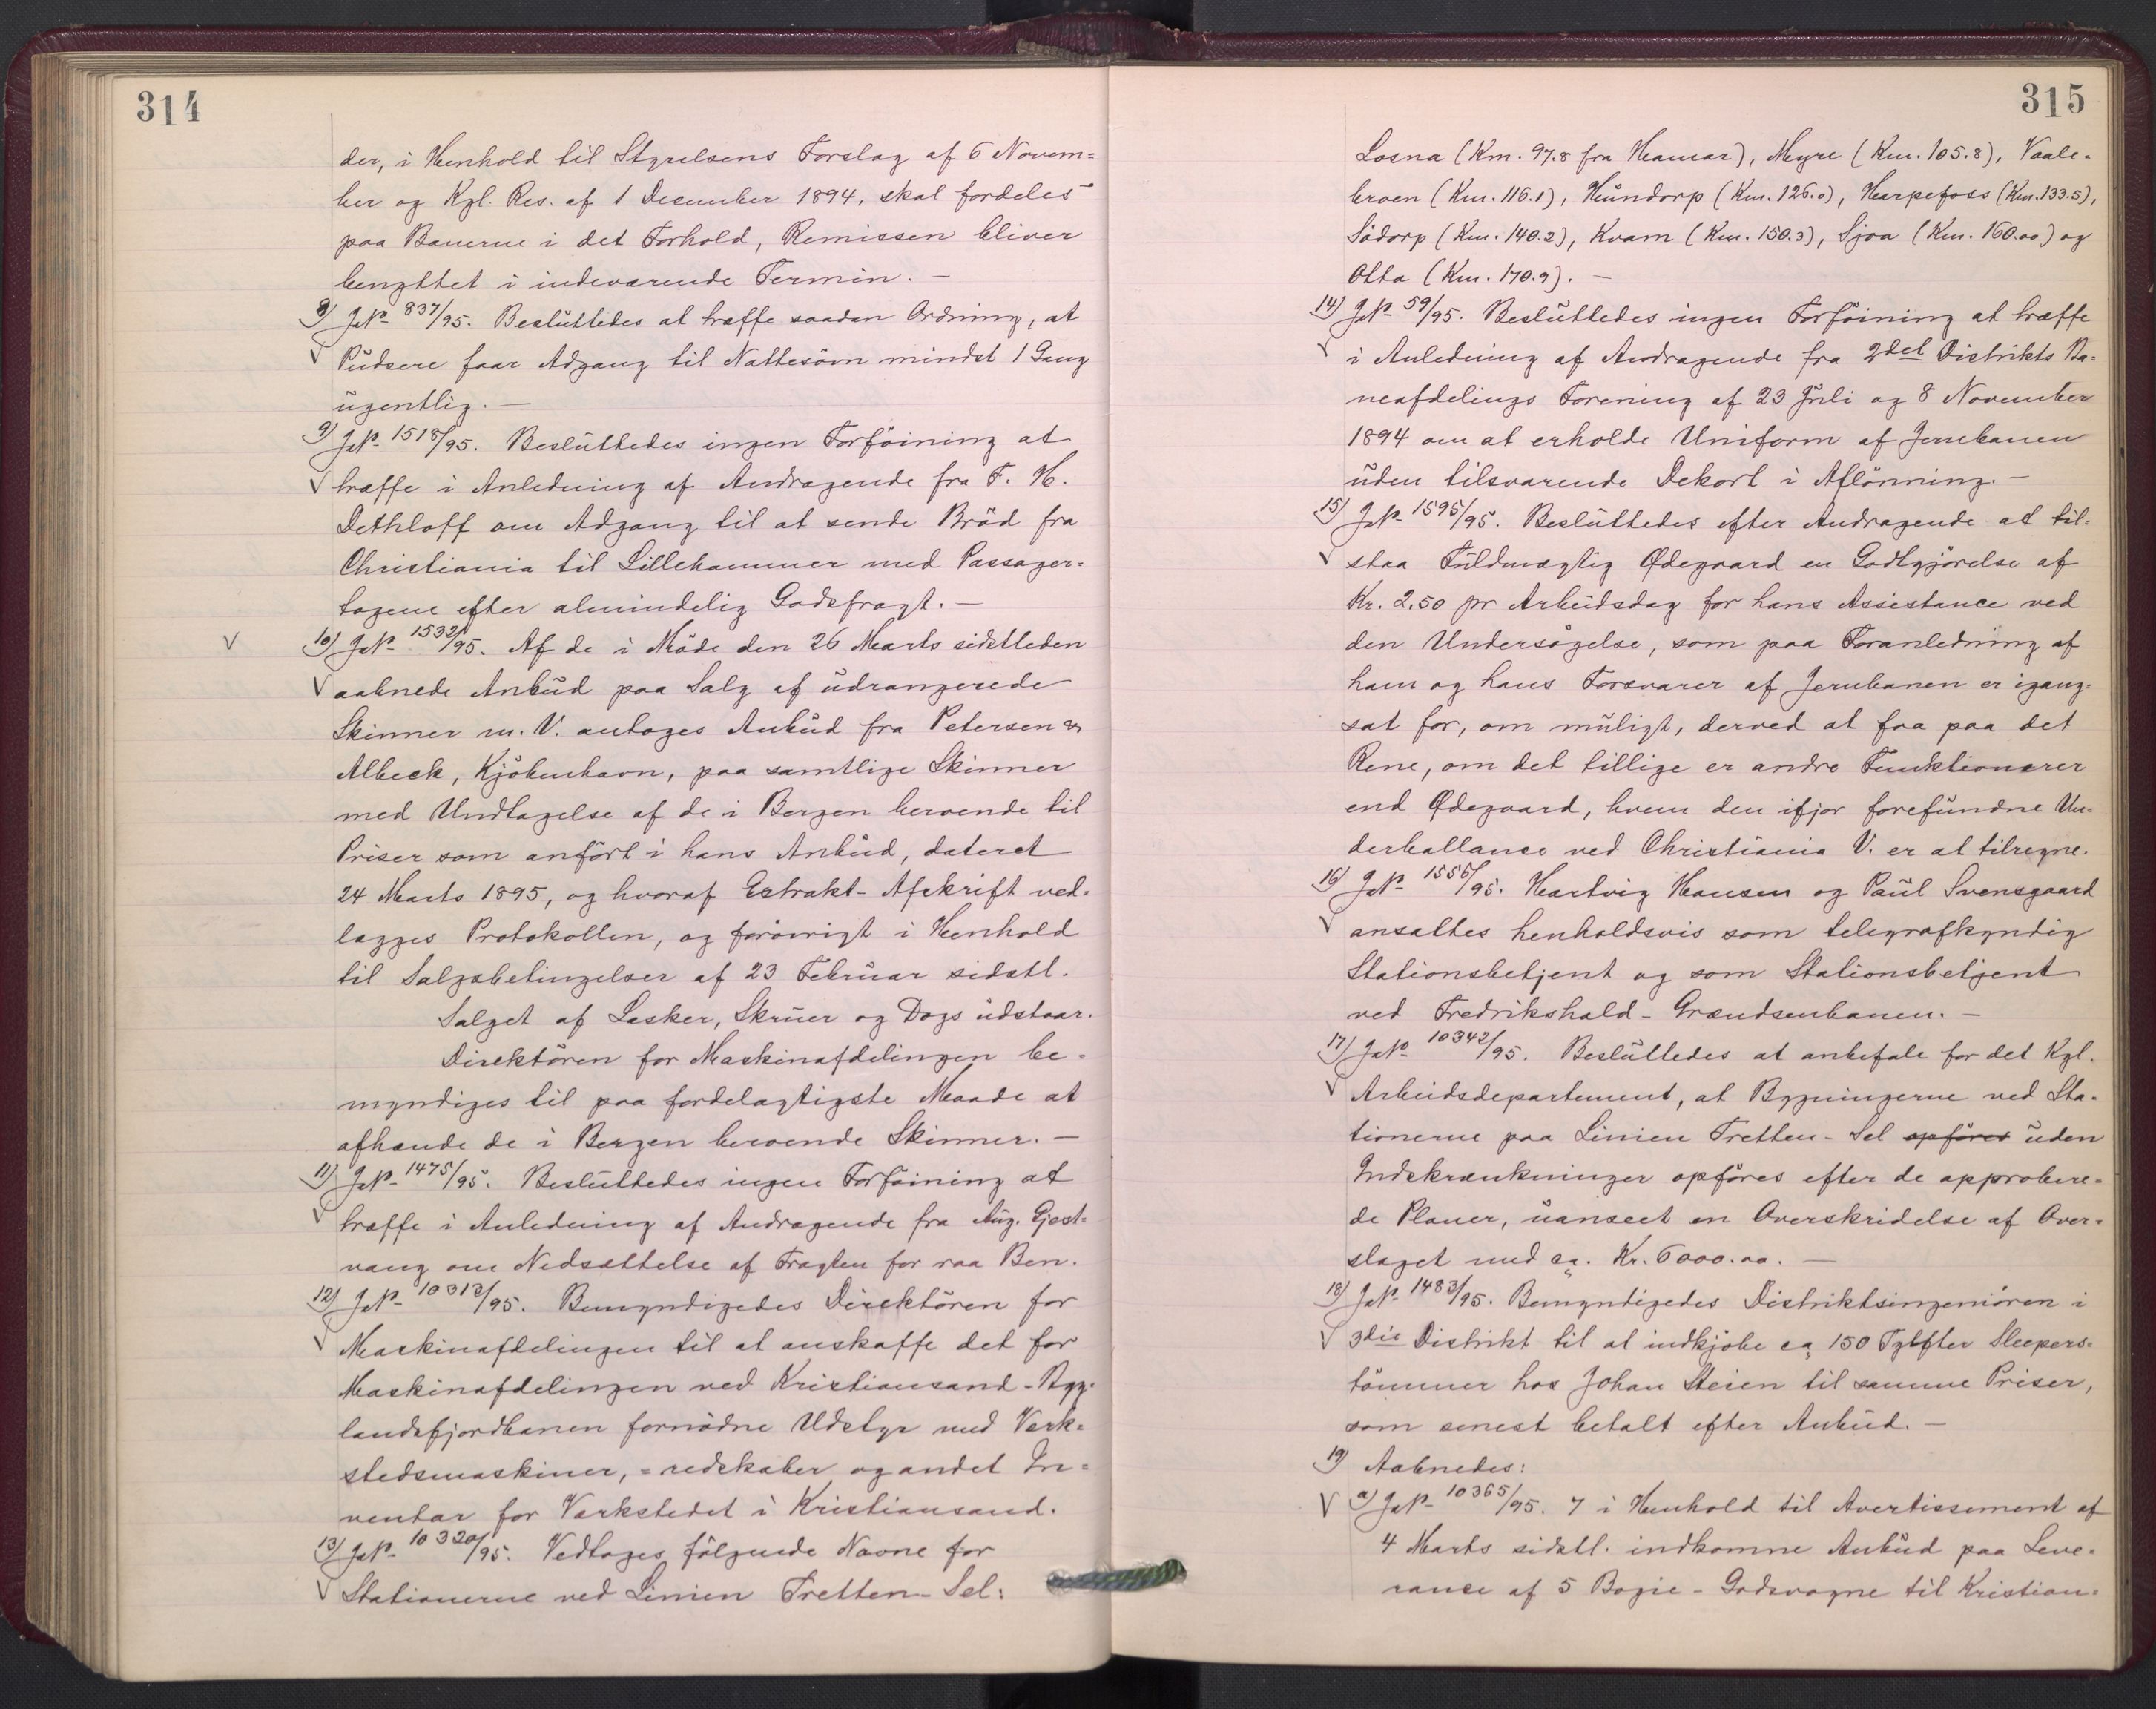 314
der, i Henhold til Styrelsens Forslag af 6 Novem=
ber og Kgl. Res. af 1 December 1894, skal fordeles
paa Banerne i det Forhold, Remissen bliver
benyttet i indeværende Termin. –
8) J.N. 837/95. Besluttedes at træffe saadan Ordning, at
Pudsere faar Adgang til Nattesövn mindst 1 Gang
ugentlig. –
9) J.N. 1518/95. Besluttedes ingen Forföining at
træffe i Anledning af Andragende fra F. H.
Dethloff om Adgang til at sende Bröd fra
Christiania til Lillehammer med Passager=
togene efter almindelig Godsfragt. –
10) J.N. 1532/95. Af de i Möde den 26 Marts sidstleden
aabnede Anbud paa Salg af udrangerede
Skinner m. V. antoges Anbud fra Petersen &
Albeck, Kjöbenhavn, paa samtlige Skinner
med Undtagelse af de i Bergen beroende til
Priser som anfört i hans Anbud, dateret
24 Marts 1895, og hvoraf Extrakt-Afskrift ved=
lægges Protokollen, og forövrigt i Henhold
til Salgsbetingelser af 23 Februar sidstl.
Salget af Lasker, Skruer og Dogs udstaar.
Direktören for Maskinafdelingen be=
myndiges til paa fordelagtigste Maade at
afhænde de i Bergen beroende Skinner. –
11) J.N. 1475/95. Besluttedes ingen Forföining at
træffe i Anledning af Andragende fra Aug. Gjest=
vang om Nedsættelse af Fragten for raa Ben.
12) J.N. 10313/95. Bemyndigedes Direktören for
Maskinafdelingen til at anskaffe det for
Maskinafdelingen ved Kristiansand-Byg=
landsfjordbanen fornödne Udstyr med Værk=
stedsmaskiner, =redskaber og andet In=
ventar for Værkstedet i Kristiansand.
13) J.N. 10320/95. Vedtoges fölgende Navne for
Stationerne ved Linien Tretten-Sel:
315
Losna (Km. 97.8 fra Hamar), Myre (Km. 105.8), Vaale=
broen (Km. 116.1), Hundorp (Km. 126.0), Harpefoss (Km. 133.5),
Södorp (Km. 140.2), Kvam (Km. 150.3), Sjoa (Km. 160.00) og
Otta (Km. 170.9). –
14) J.N. 59/95. Besluttedes ingen Forföining at træffe
i Anledning af Andragende fra 2det Distrikts Ba=
neafdelings Forening af 23 Juli og 8 November
1894 om at erholde Uniform af Jernbanen
uden tilsvarende Dekort i Aflönning. –
15) J.N. 1595/95. Besluttedes efter Andragende at til=
staa Fuldmægtig Ødegaard en Godtgjörelse af
Kr. 2.50 pr Arbeidsdag for hans Assistance ved
den Undersögelse, som paa Foranledning af
ham og hans Forsvarer af Jernbanen er igang=
sat for, om muligt, derved at faa paa det
Rene, om det tillige er andre Funktionærer
end Ødegaard, hvem den ifjor forefundne Un=
derballance ved Christiania V. er at tilregne.
16) J.N. 1556/95. Hartvig Hansen og Paul Svensgaard
ansattes henholdsvis som telegrafkyndig
Stationsbetjent og som Stationsbetjent
ved Fredrikshald-Grændsenbanen. –
17) J.N. 10342/95. Besluttedes at anbefale for det Kgl.
Arbeidsdepartement, at Bygningerne ved Sta=
tionerne paa Linien Tretten-Sel opföres uden
Indskrænkninger opföres efter de approbere=
de Planer, uanseet en Overskridelse af Over=
slaget med ca. Kr. 6000.00. –
18) J.N. 1483/95. Bemyndigedes Distriktsingeniören i
3die Distrikt til at indkjöbe ca 150 Tylfter Sleepers=
tömmer hos Johan Steien til samme Priser,
som senest betalt efter Anbud. –
19) Aabnedes:
a) J.N. 10365/95. 7 i Henhold til Avertissement af
4 Marts sidstl. indkomne Anbud paa Leve=
rance af 5 Bogie-Godsvogne til Kristian=